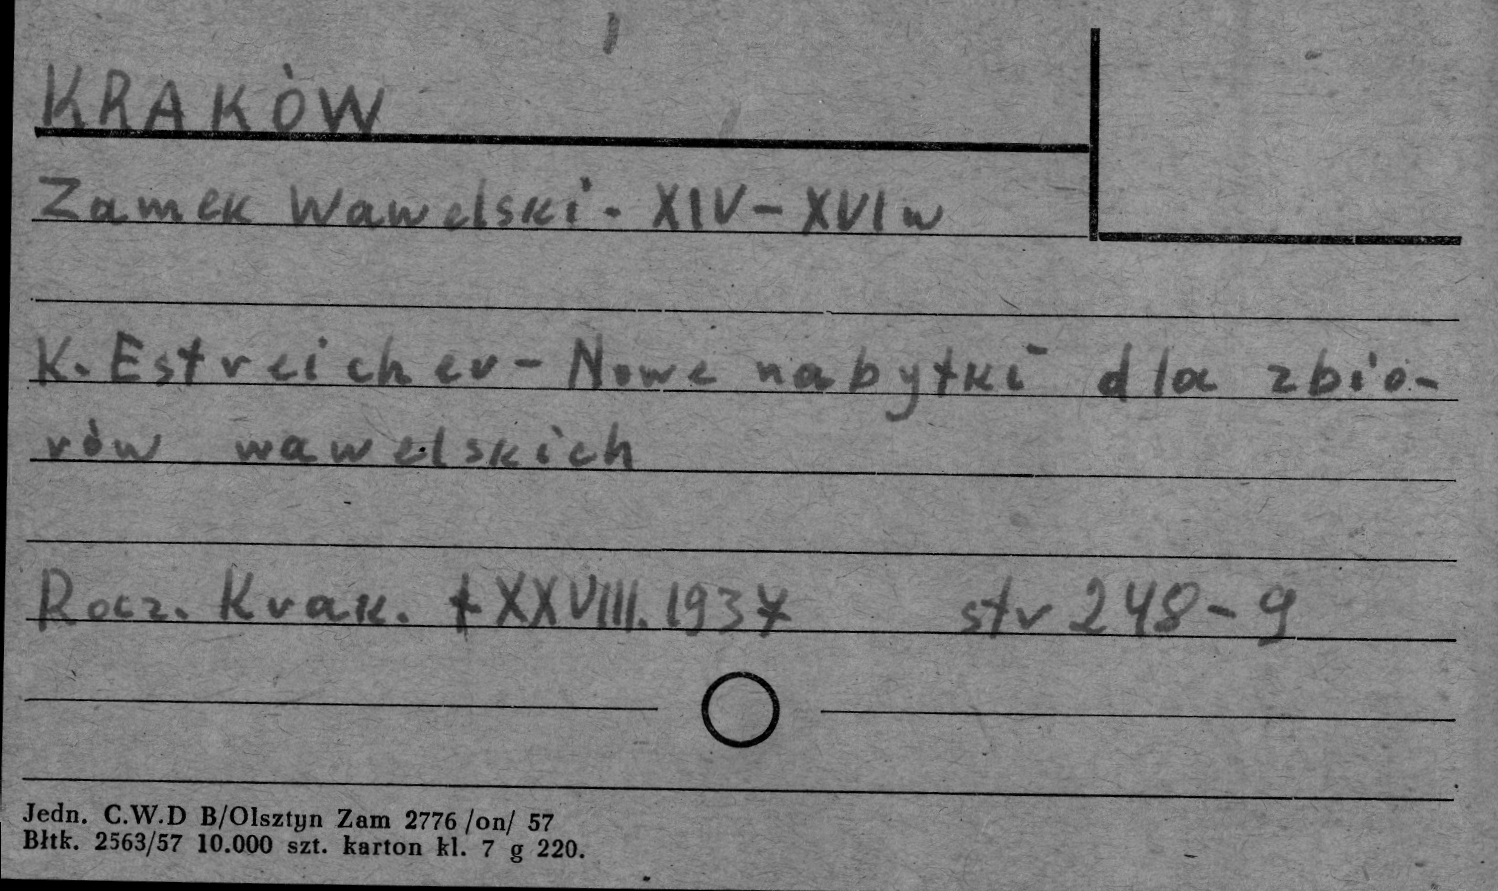 KRAKÓW
Zamek Wawelski. XIV-XVI w
K. Estreicher - Nowe nabytki dla zbio-
rów wawelskich
Rocz. Krak. t XXVIII. 1937 str 248-9
Jedn. C.W.D B/Olsztyn Zam 2776 /on/ 57
Błtk. 2563/57 10.000 szt. karton kl. 7 g 220.